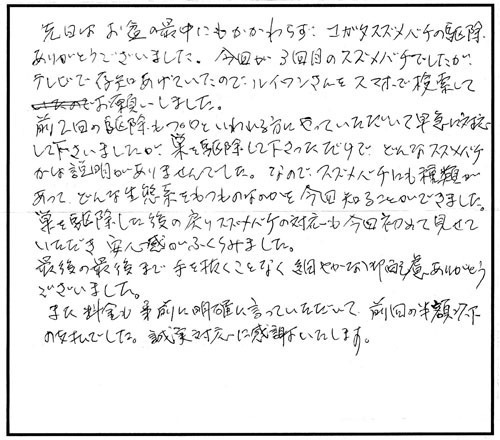 先日は お盆の最中にもかかわらず、コガタスズメバチの駆除
ありがとうございました。今回が3回目のスズメバチでしたが、
テレビで存知あげていたので、ルイワンさんを スマホで検索して
お願いしました。
前2回の駆除もプロといわれる方にやっていただいて早急に対応
して下さいましたが、巣を駆除して下さっただけで、どんなスズメバチ
かは説明がありませんでした。なので、スズメバチにも種類が
あって、どんな生態系をもつものなのかを今回知ることができました。
巣を駆除した後の戻りスズメバチの対応も今回初めて見せて
いただき 安心感がふくらみました。
最後の最後まで 手を抜くことなく 細やかな御配慮ありがとう
ございました。
また 料金も 事前に明確に言っていただいて、前回の半額以下
の支払でした。誠実な対応に感謝いたします。